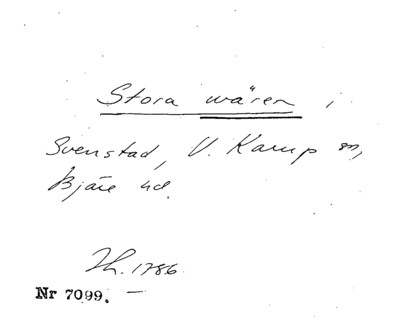 Stora wären i
Svenstad, V. Karup sn,
Bjäre hd.
Th. 1786
Nr 7099. —